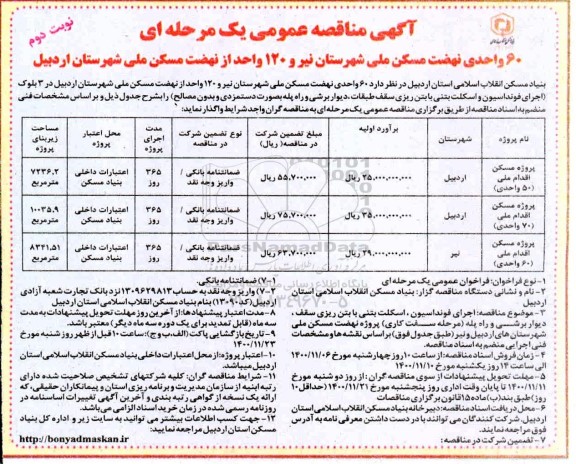 نوبت دوم
آگهی مناقصه عمومی یک مرحله ای
۶۰ واحدی نهضت مسکن ملی شهرستان نیر و ۱۲۰ واحد از نهضت مسکن ملی شهرستان اردبیل
بنیاد مسکن انقلاب اسلامی استان اردبیل در نظر دارد ۶۰ واحدی نهضت مسکن ملی شهرستان نیر و ۱۲۰ واحد از نهضت مسکن ملی شهرستان اردبیل در ۳ بلوک
(اجرای فونداسیون و اسکلت بتنی با بتن ریزی سقف طبقات، دیوار برشی و راه پله بصورت دستمزدی و بدون مصالح) را بشرح جدول ذیل و بر اساس مشخصات فنی
منضم به اسناد مناقصه از طریق برگزاری مناقصه عمومی یک مرحله ای به مناقصه گران واجد شرایط واگذار نماید:
نام پروژه شهرستان برآورد اولیه مبلغ تضمین شرکت در مناقصه (ریال) نوع تضمین شرکت در مناقصه مدت اجرای پروژه محل اعتبار پروژه مساحت زیربنای پروژه
پروژه مسکن اقدام ملی (۵۰ واحدی) اردبیل ۲۵,۰۰۰,۰۰۰,۰۰۰ ریال ۵۵,۷۰۰,۰۰۰ ریال ضمانتنامه بانکی / واریز وجه نقد ۳۶۵ روز اعتبارات داخلی بنیاد مسکن ۷۲۳۶,۲ مترمربع
پروژه مسکن اقدام ملی (۷۰ واحدی) اردبیل ۳۵,۰۰۰,۰۰۰,۰۰۰ ریال ۷۵,۷۰۰,۰۰۰ ریال ضمانتنامه بانکی / واریز وجه نقد ۳۶۵ روز اعتبارات داخلی بنیاد مسکن ۱۰۰۳۵,۹ مترمربع
پروژه مسکن اقدام ملی (۶۰ واحدی) نیر ۲۹,۰۰۰,۰۰۰,۰۰۰ ریال ۶۳,۷۰۰,۰۰۰ ریال ضمانتنامه بانکی / واریز وجه نقد ۳۶۵ روز اعتبارات داخلی بنیاد مسکن ۸۳۴۱,۵۱ مترمربع
۱- نوع فراخوان: فراخوان عمومی یک مرحله ای
۲- نام و نشانی دستگاه مناقصه گزار: بنیاد مسکن انقلاب اسلامی استان
اردبیل
۳- موضوع مناقصه: اجرای فونداسیون، اسکلت بتنی با بتن ریزی سقف،
دیوار برشی و راه پله (مرحله سفت کاری) پروژه نهضت مسکن ملی
شهرستان های اردبیل و نیر (طبق جدول فوق) بر اساس نقشه ها و مشخصات
فنی اجرایی منضم به اسناد مناقصه.
۴- زمان فروش اسناد مناقصه: از ساعت ۱۰ روز چهارشنبه مورخ ۱۴۰۰/۱۱/۰۶
الی ساعت ۱۴ روز یکشنبه مورخ ۱۴۰۰/۱۱/۱۰
۵- مهلت تحویل پیشنهادات از سوی مناقصه گران: از روز دوشنبه مورخ
۱۴۰۰/۱۱/۱۱ تا پایان وقت اداری روز پنجشنبه مورخ ۱۴۰۰/۱۱/۲۱ (حداقل ۱۰
روز) طبق بند (ب) ماده ۱۵ قانون برگزاری مناقصات
۶- محل دریافت اسناد مناقصه: دبیرخانه بنیاد مسکن انقلاب اسلامی استان
اردبیل. شرکت کنندگان می توانند با در دست داشتن معرفی نامه به آدرس
فوق مراجعه نمایند.
۷- تضمین شرکت در مناقصه:
۷-۱) ضمانتنامه بانکی
۷-۲) واریز وجه نقد به حساب ۱۳۰۹۶۲۹۸۱۳ نزد بانک تجارت شعبه آزادی
اردبیل (کد ۱۳۰۹۰) بنام بنیاد مسکن انقلاب اسلامی استان اردبیل
۸- مدت اعتبار پیشنهادها: از آخرین روز مهلت تحویل پیشنهادات به مدت
سه ماه (قابل تمدید برای یک دوره سه ماه دیگر) معتبر باشد.
۹- تاریخ بازگشایی پاکت (الف، ب و ج): ساعت ۱۰ قبل از ظهر روز شنبه مورخ
۱۴۰۰/۱۱/۲۳
۱۰- اعتبار پروژه: از محل اعتبارات داخلی بنیاد مسکن انقلاب اسلامی استان
اردبیل میباشد.
۱۱- شرایط مناقصه گران: کلیه شرکتهای تشخیص صلاحیت شده دارای
رتبه ابنیه از سازمان مدیریت و برنامه ریزی استان و پیمانکاران حقیقی، که
ارائه یک نسخه از گواهی رتبه بندی و آخرین آگهی تغییرات اساسنامه در
روزنامه رسمی شده در زمان خرید اسناد الزامی می باشد.
۱۲- جهت کسب اطلاعات بیشتر می توانید به سایت زیر و اداره کل بنیاد
مسکن استان اردبیل مراجعه نمایید:
http://bonyadmaskan.ir